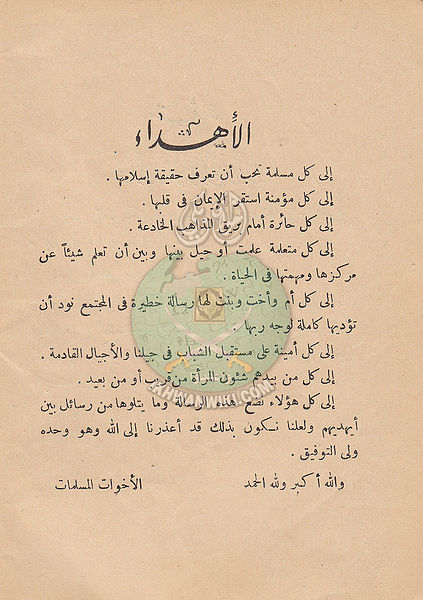 الأهداء
إلى كل مسلمة تحب أن تعرف حقيقة إسلامها .
إلى كل مؤمنة استقر الإيمان فى قلبها .
إلى كل حائرة أمام بريق المذاهب الخادعة .
إلى كل متعلمة علمت أو حيل بينها وبين أن تعلم شيئاً عن
مركزها ومهمتها فى الحياة .
إلى كل أم وأخت وبنت لها رسالة خطيرة فى المجتمع نود أن
تؤديها كاملة لوجه ربها .
إلى كل أمينة على مستقبل الشباب فى جيلنا والأجيال القادمة .
إلى كل من بيدهم شئون المرأة من قريب أو من بعيد .
إلى كل هؤلاء نضع هذه الرسالة وما يتلوها من رسائل بين
أيديهم ولعلنا نكون بذلك قد أعذرنا إلى الله وهو وحده
ولى التوفيق .
والله أكبر ولله الحمد الأخوات المسلمات
IKHWANWIKI.COM